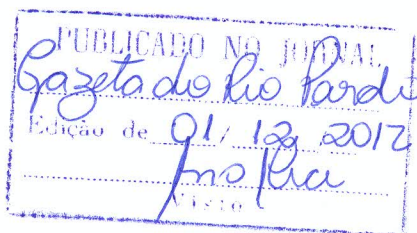 PUBLICADO NO JORNAL
Gazeta do Rio Pardo
Edição de 01/12/2012
Visto